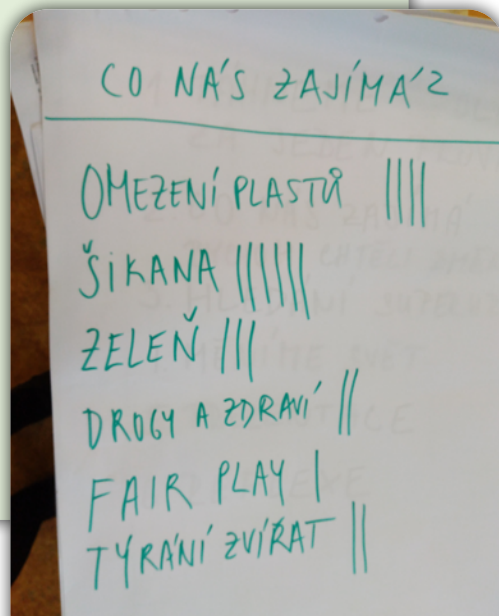 CO NÁS ZAJÍMÁ?
OMEZENÍ PLASTŮ ||||
ŠIKANA ||||||
ZELEŇ |||
DROGY A ZDRAVÍ ||
FAIR PLAY |
TÝRÁNÍ ZVÍŘAT ||